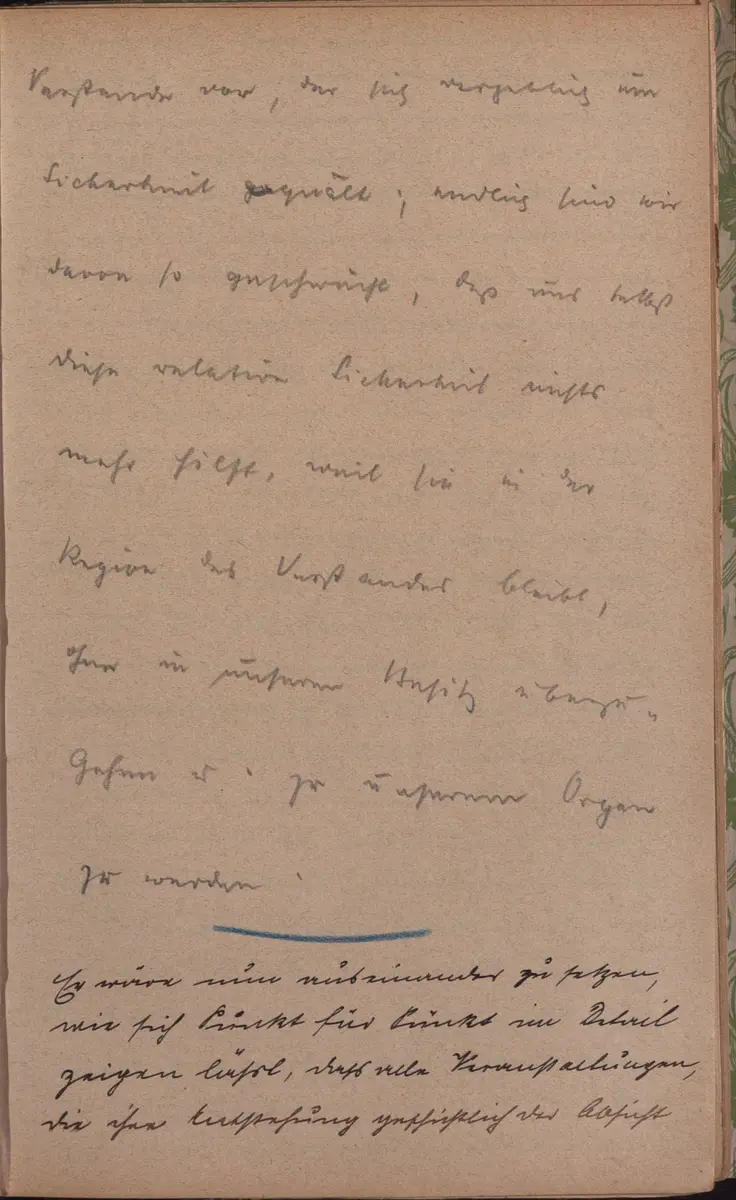 Verstande vor, der sich vergeblich um
Sicherheit gequält; endlich sind wir
davon so geschwächt, daß uns selbst
diese relative Sicherheit nichts
mehr hilft, weil sie in der
Region des Verstandes bleibt,
ohne in unseren Besitz überzu-
gehen u. zu unserem Organ
zu werden.
Es wäre nun auseinander zu setzen,
wie sich Punkt für Punkt im Detail
zeigen läßt, daß alle Veranstaltungen,
die ihre Entstehung geschichtlich der Absicht